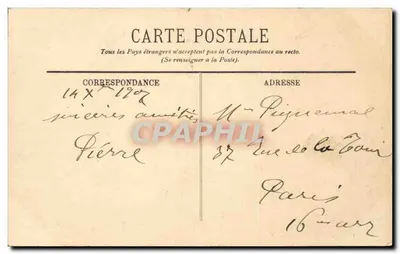 CARTE POSTALE
Tous les Pays étrangers n'acceptent pas la Correspondance au recto.
(Se renseigner à la Poste).
CORRESPONDANCE
14 Xbre 1907
sincères amitiés
Pierre
ADRESSE
37 Rue de la Tour
Paris
16e arr
CPAPHIL